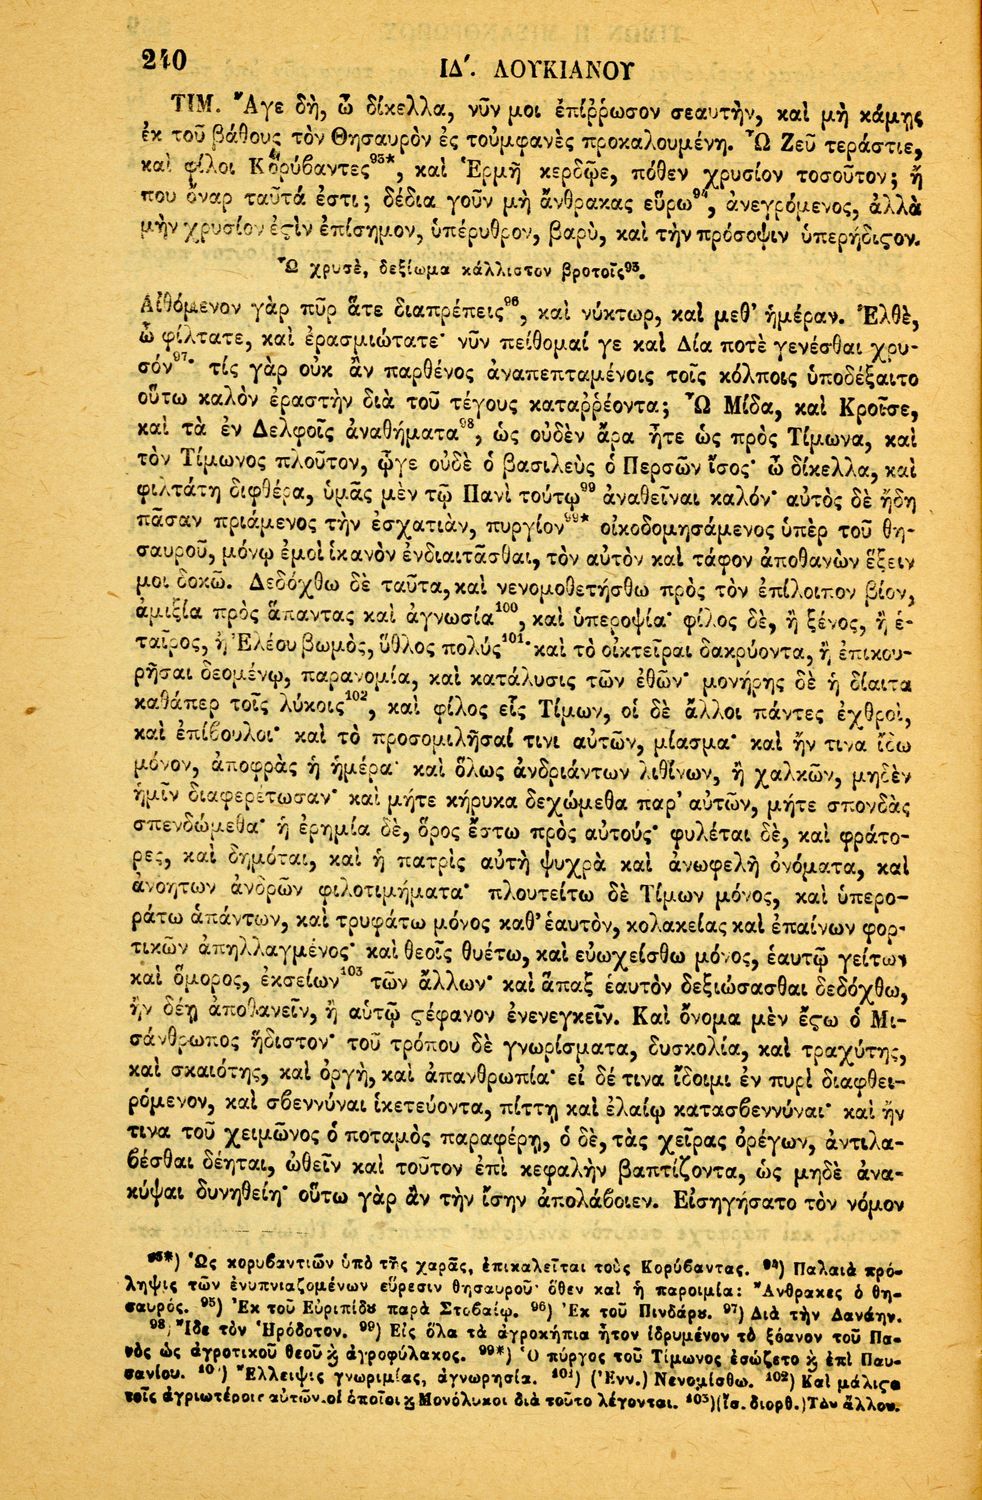 240
ΙΔ΄. ΛΟΥΚΙΑΝΟΥ
ΤΙΜ. Ἄγε δὴ, ὦ δίκελλα, νῦν μοι ἐπίῤῥωσον σεαυτὴν, καὶ μὴ κάμῃς
ἐκ τοῦ βάθους τὸν Θησαυρὸν ἐς τοὐμφανὲς προκαλουμένη. Ὦ Ζεῦ τεράστιε,
καὶ φίλοι Κορύβαντες⁹³*, καὶ Ἑρμῆ κερδῷε, πόθεν χρυσίον τοσοῦτον; ἤ
που ὄναρ ταῦτά ἐστι; δέδια γοῦν μὴ ἄνθρακας εὕρω⁹⁴, ἀνεγρόμενος, ἀλλὰ
μὴν χρυσίον ἐςὶν ἐπίσημον, ὑπέρυθρον, βαρὺ, καὶ τὴν πρόσοψιν ὑπερήδιςον.
Ὦ χρυσὲ, δεξίωμα κάλλιστον βροτοῖς⁹⁵.
Αἰθόμενον γὰρ πῦρ ἅτε διαπρέπεις⁹⁶, καὶ νύκτωρ, καὶ μεθ' ἡμέραν. Ἐλθὲ,
ὦ φίλτατε, καὶ ἐρασμιώτατε· νῦν πείθομαί γε καὶ Δία ποτὲ γενέσθαι χρυ-
σόν⁹⁷· τίς γὰρ οὐκ ἂν παρθένος ἀναπεπταμένοις τοῖς κόλποις ὑποδέξαιτο
οὕτω καλὸν ἐραστὴν διὰ τοῦ τέγους καταῤῥέοντα; Ὦ Μίδα, καὶ Κροῖσε,
καὶ τὰ ἐν Δελφοῖς ἀναθήματα⁹⁸, ὡς οὐδὲν ἄρα ἦτε ὡς πρὸς Τίμωνα, καὶ
τὸν Τίμωνος πλοῦτον, ᾧγε οὐδὲ ὁ βασιλεὺς ὁ Περσῶν ἴσος· ὦ δίκελλα, καὶ
φιλτάτη διφθέρα, ὑμᾶς μὲν τῷ Πανὶ τούτῳ⁹⁹ ἀναθεῖναι καλόν· αὐτὸς δὲ ἤδη
πᾶσαν πριάμενος τὴν ἐσχατιὰν, πυργίον⁹⁹* οἰκοδομησάμενος ὑπὲρ τοῦ θη-
σαυροῦ, μόνῳ ἐμοὶ ἱκανὸν ἐνδιαιτᾶσθαι, τὸν αὐτὸν καὶ τάφον ἀποθανὼν ἕξειν
μοι δοκῶ. Δεδόχθω δὲ ταῦτα, καὶ νενομοθετήσθω πρὸς τὸν ἐπίλοιπον βίον,
ἀμιξία πρὸς ἅπαντας καὶ ἀγνωσία¹⁰⁰, καὶ ὑπεροψία· φίλος δὲ, ἢ ξένος, ἢ ἑ-
ταῖρος, ἢ Ἐλέου βωμὸς, ὕθλος πολύς¹⁰¹· καὶ τὸ οἰκτεῖραι δακρύοντα, ἢ ἐπικου-
ρῆσαι δεομένῳ, παρανομία, καὶ κατάλυσις τῶν ἐθῶν· μονήρης δὲ ἡ δίαιτα
καθάπερ τοῖς λύκοις¹⁰², καὶ φίλος εἷς Τίμων, οἱ δὲ ἄλλοι πάντες ἐχθροὶ,
καὶ ἐπίβουλοι· καὶ τὸ προσομιλῆσαί τινι αὐτῶν, μίασμα· καὶ ἤν τινα ἴδω
μόνον, ἀποφρὰς ἡ ἡμέρα· καὶ ὅλως ἀνδριάντων λιθίνων, ἢ χαλκῶν, μηδὲν
ἡμῖν διαφερέτωσαν· καὶ μήτε κήρυκα δεχώμεθα παρ' αὐτῶν, μήτε σπονδὰς
σπενδώμεθα· ἡ ἐρημία δὲ, ὅρος ἔστω πρὸς αὐτούς· φυλέται δὲ, καὶ φράτο-
ρες, καὶ δημόται, καὶ ἡ πατρὶς αὐτὴ ψυχρὰ καὶ ἀνωφελῆ ὀνόματα, καὶ
ἀνοήτων ἀνδρῶν φιλοτιμήματα· πλουτείτω δὲ Τίμων μόνος, καὶ ὑπερο-
ράτω ἁπάντων, καὶ τρυφάτω μόνος καθ' ἑαυτὸν, κολακείας καὶ ἐπαίνων φορ-
τικῶν ἀπηλλαγμένος· καὶ θεοῖς θυέτω, καὶ εὐωχείσθω μόνος, ἑαυτῷ γείτων
καὶ ὅμορος, ἐκσείων¹⁰³ τῶν ἄλλων· καὶ ἅπαξ ἑαυτὸν δεξιώσασθαι δεδόχθω,
ἢν δέῃ ἀποθανεῖν, ἢ αὑτῷ ςέφανον ἐνενεγκεῖν. Καὶ ὄνομα μὲν ἔςω ὁ Μι-
σάνθρωπος ἥδιστον· τοῦ τρόπου δὲ γνωρίσματα, δυσκολία, καὶ τραχύτης,
καὶ σκαιότης, καὶ ὀργὴ, καὶ ἀπανθρωπία· εἰ δέ τινα ἴδοιμι ἐν πυρὶ διαφθει-
ρόμενον, καὶ σβεννύναι ἱκετεύοντα, πίττῃ καὶ ἐλαίῳ κατασβεννύναι· καὶ ἤν
τινα τοῦ χειμῶνος ὁ ποταμὸς παραφέρῃ, ὁ δὲ, τὰς χεῖρας ὀρέγων, ἀντιλα-
βέσθαι δέηται, ὠθεῖν καὶ τοῦτον ἐπὶ κεφαλὴν βαπτίζοντα, ὡς μηδὲ ἀνα-
κύψαι δυνηθείη· οὕτω γὰρ ἂν τὴν ἴσην ἀπολάβοιεν. Εἰσηγήσατο τὸν νόμον
⁹³*) Ὡς κορυβαντιῶν ὑπὸ τῆς χαρᾶς, ἐπικαλεῖται τοὺς Κορύβαντας. ⁹⁴) Παλαιὰ πρό-
ληψις τῶν ἐνυπνιαζομένων εὕρεσιν θησαυροῦ· ὅθεν καὶ ἡ παροιμία: Ἄνθρακες ὁ θη-
σαυρός. ⁹⁵) Ἐκ τοῦ Εὐριπίδȣ παρὰ Στοβαίῳ. ⁹⁶) Ἐκ τοῦ Πινδάρȣ. ⁹⁷) Διὰ τὴν Δανάην.
⁹⁸) Ἴδε τὸν Ἡρόδοτον. ⁹⁹) Εἰς ὅλα τὰ ἀγροκήπια ἦτον ἱδρυμένον τὸ ξόανον τοῦ Πα-
νὸς ὡς ἀγροτικοῦ θεοῦ ϗ ἀγροφύλακος. ⁹⁹*) Ὁ πύργος τοῦ Τίμωνος ἐσώζετο ϗ ἐπὶ Παυ-
σανίου. ¹⁰⁰) Ἔλλειψις γνωριμίας, ἀγνωρησία. ¹⁰¹) (Ἐνν.) Νενομίσθω. ¹⁰²) Καὶ μάλιςα
τοῖς ἀγριωτέροις αὐτῶν. οἱ ὁποῖοι ϗ Μονόλυκοι διὰ τοῦτο λέγονται. ¹⁰³) (ἴσ. διορθ.) Τῶν ἄλλων.